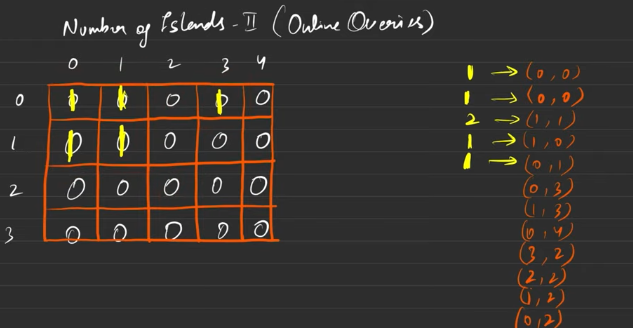 Number of Islands - II (Online Queries)
0 1 2 3 4
0 0 0 0 0 0
1 0 0 0 0 0
2 0 0 0 0 0
3 0 0 0 0 0
1 → (0, 0)
1 → (0, 0)
2 → (1, 1)
1 → (1, 0)
1 → (0, 1)
(0, 3)
(1, 3)
(0, 4)
(3, 2)
(2, 2)
(1, 2)
(0, 2)